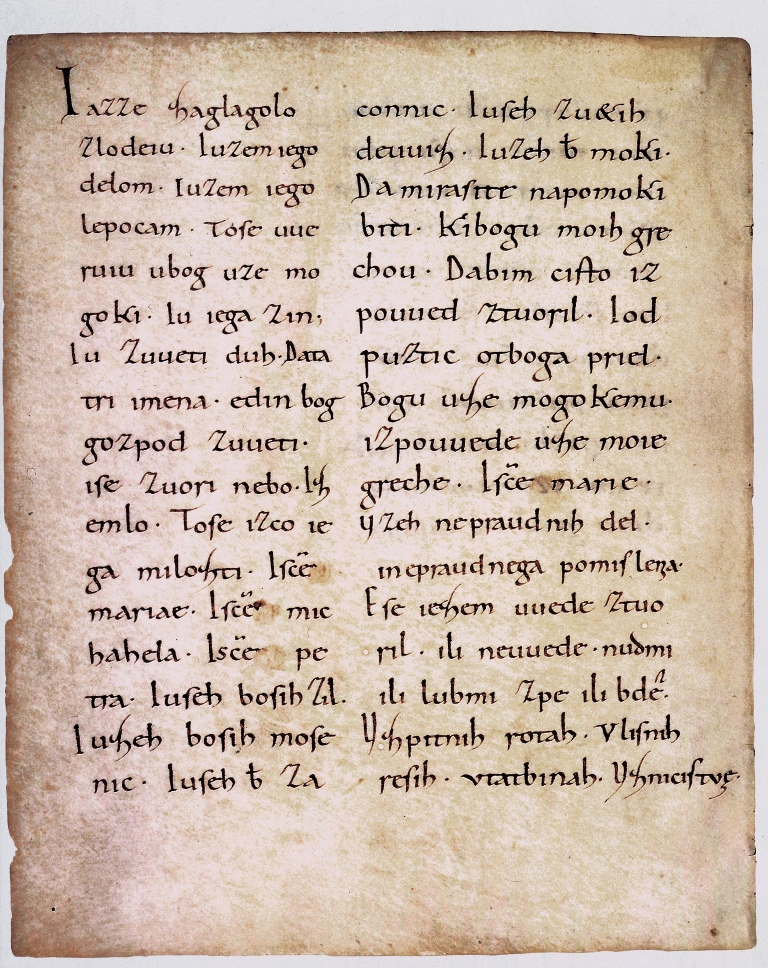 Iazze zaglagolo
zlodeiu. Iuzem iego
delom. Iuzem iego
lepocam. Tose uue
ruiu ubog uze mo
goki. Iu iega zin;
Iu zuueti duh. Data
tri imena. edin bog
gozpod zuueti.
ise zuori nebo. Iz
emlo. Tose izco ie
ga milozti. Iscē
mariae. Iscē mic
hahela. Iscē pe
tra. Iuseh bosih zil.
Iuzeh bosih mose
nic. Iuseh b̄ za
connic. Iuseh zu&ih
deuuiz. Iuzeh b̄ moki.
Da mirastte napomoki
biti. Kibogu moih gre
chou. Dabim cisto iz
pouued ztuoril. Iod
puztic otboga priel.
Bogu uze mogokemu.
izpouuede uze moie
greche. Iscē marie.
Uzeh nepraudnih del.
inepraudnega pomislena.
Ese iezem uuede ztuo
ril. ili neuuede. nudmi
ili lubmi zpe ili bdē.
Uzpitnih rotah. Vlisnih
resih. vtatbinah. Uznicistve.